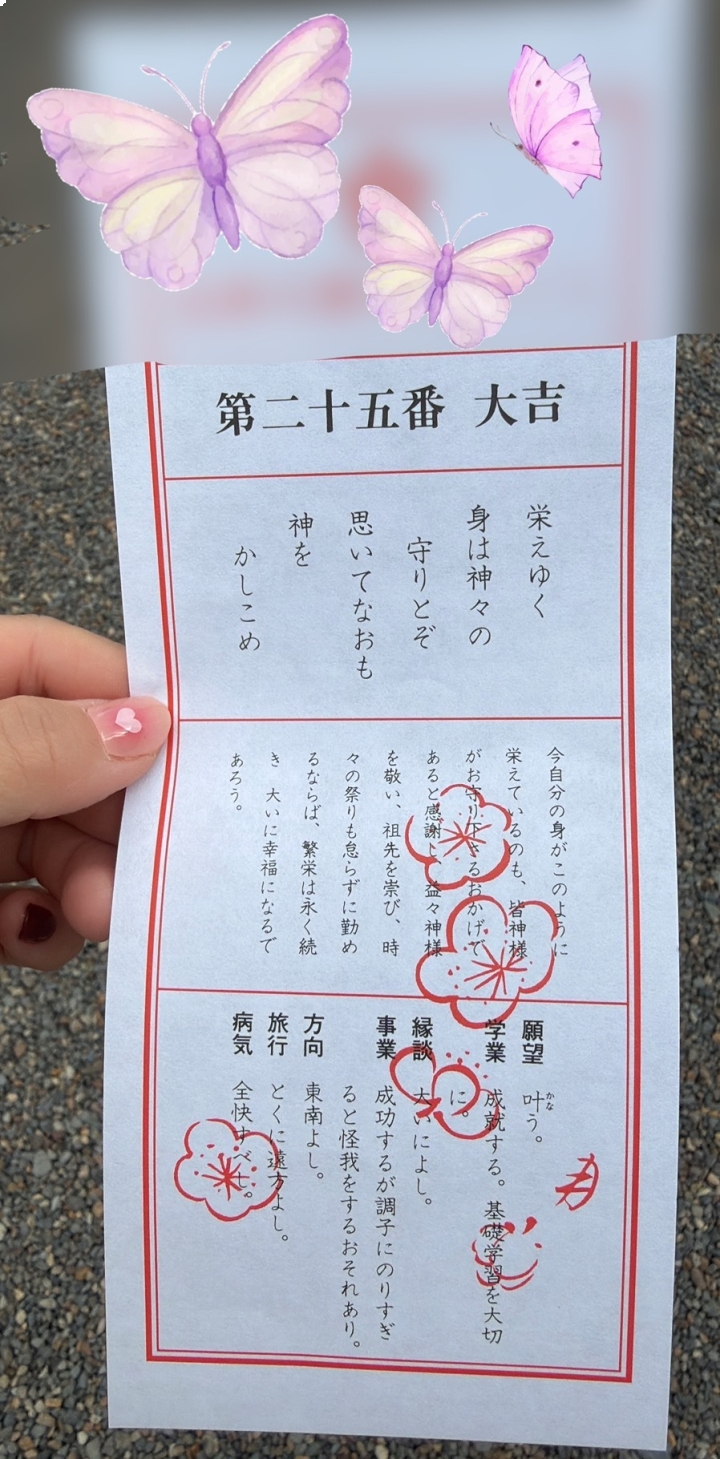 第二十五番 大吉
栄えゆく
身は神々の
守りとぞ
思いてなおも
神を
かしこめ
今自分の身がこのように
栄えているのも、皆神様
がお守り下さるおかげで
あると感謝し、益々神様
を敬い、祖先を崇び、時
々の祭りも怠らずに勤め
るならば、繁栄は永く続
き 大いに幸福になるで
あろう。
願望 叶う。
かな
学業 成就する。 基礎学習を大切
に。
縁談 大いによし。
事業 成功するが調子にのりすぎ
ると怪我をするおそれあり。
方向 東南よし。
旅行 とくに遠方よし。
病気 全快すべし。